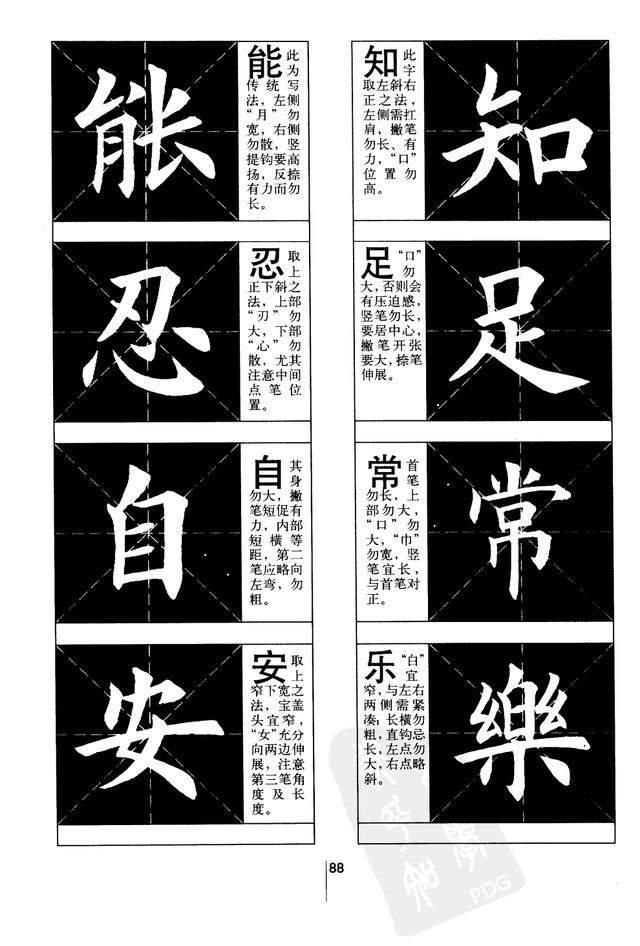 知
知此
字
取左斜右
正之法，
左侧需扛
肩，撇笔
勿长、有
力，“口”
位置勿
高。
足
足“口”
勿
大，否则会
有压迫感，
竖笔勿长，
要居中心，
撇笔开张
要大，捺笔
伸展。
常
常首
笔
勿长，上
部勿大，
“口”勿
大，“巾”
勿宽，竖
笔宜长，
与首笔对
正。
樂
乐“白”
宜
窄，与左右
两侧需紧
凑，长横勿
粗，直钩忌
长，左点勿
大，右点略
斜。
能
能此
为
传统写
法，左侧
“月”勿
宽，右侧
勿散，竖
提钩要高
扬，反捺
有力而勿
长。
忍
忍取
上
正下斜之
法，上部
“刃”勿
大，下部
“心”勿
散，尤其
注意中间
点笔位
置。
自
自其
身
勿大，撇
笔短促有
力，内部
短横等
距，第二
笔应略向
左弯，勿
粗。
安
安取
上
窄下宽之
法，宝盖
头宜窄，
“女”充分
向两边伸
展，注意
第三笔角
度及长
度。
88
PDG